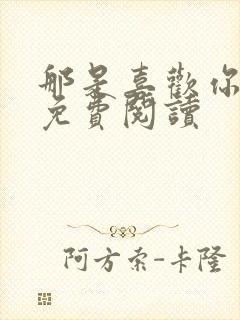 那是喜歡你
免費閱讀
阿方索-卡隆